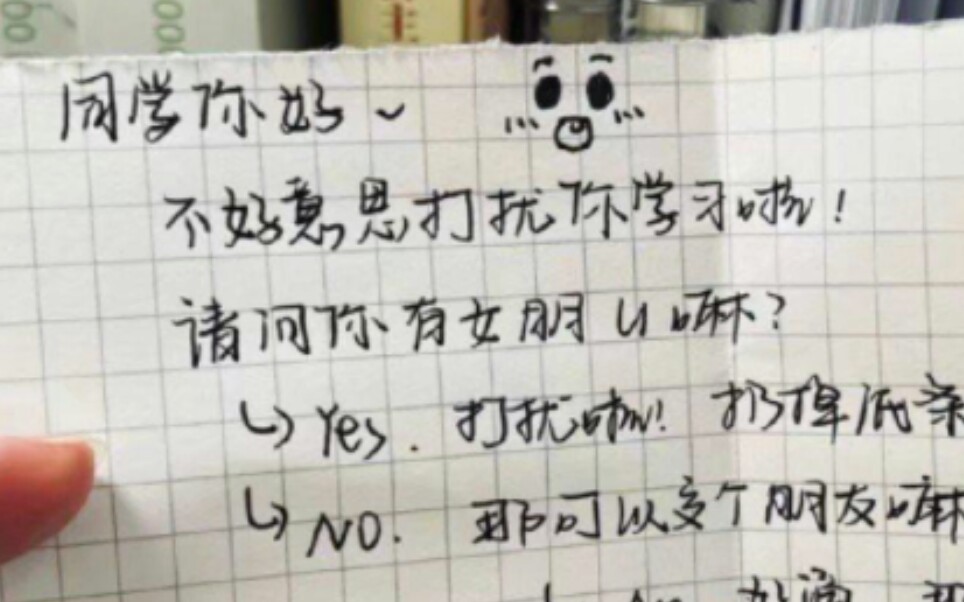 同学你好~
不好意思打扰你学习啦!
请问你有女朋u嘛?
↳Yes. 打扰啦! 扔掉纸条
↳NO. 那可以交个朋友嘛